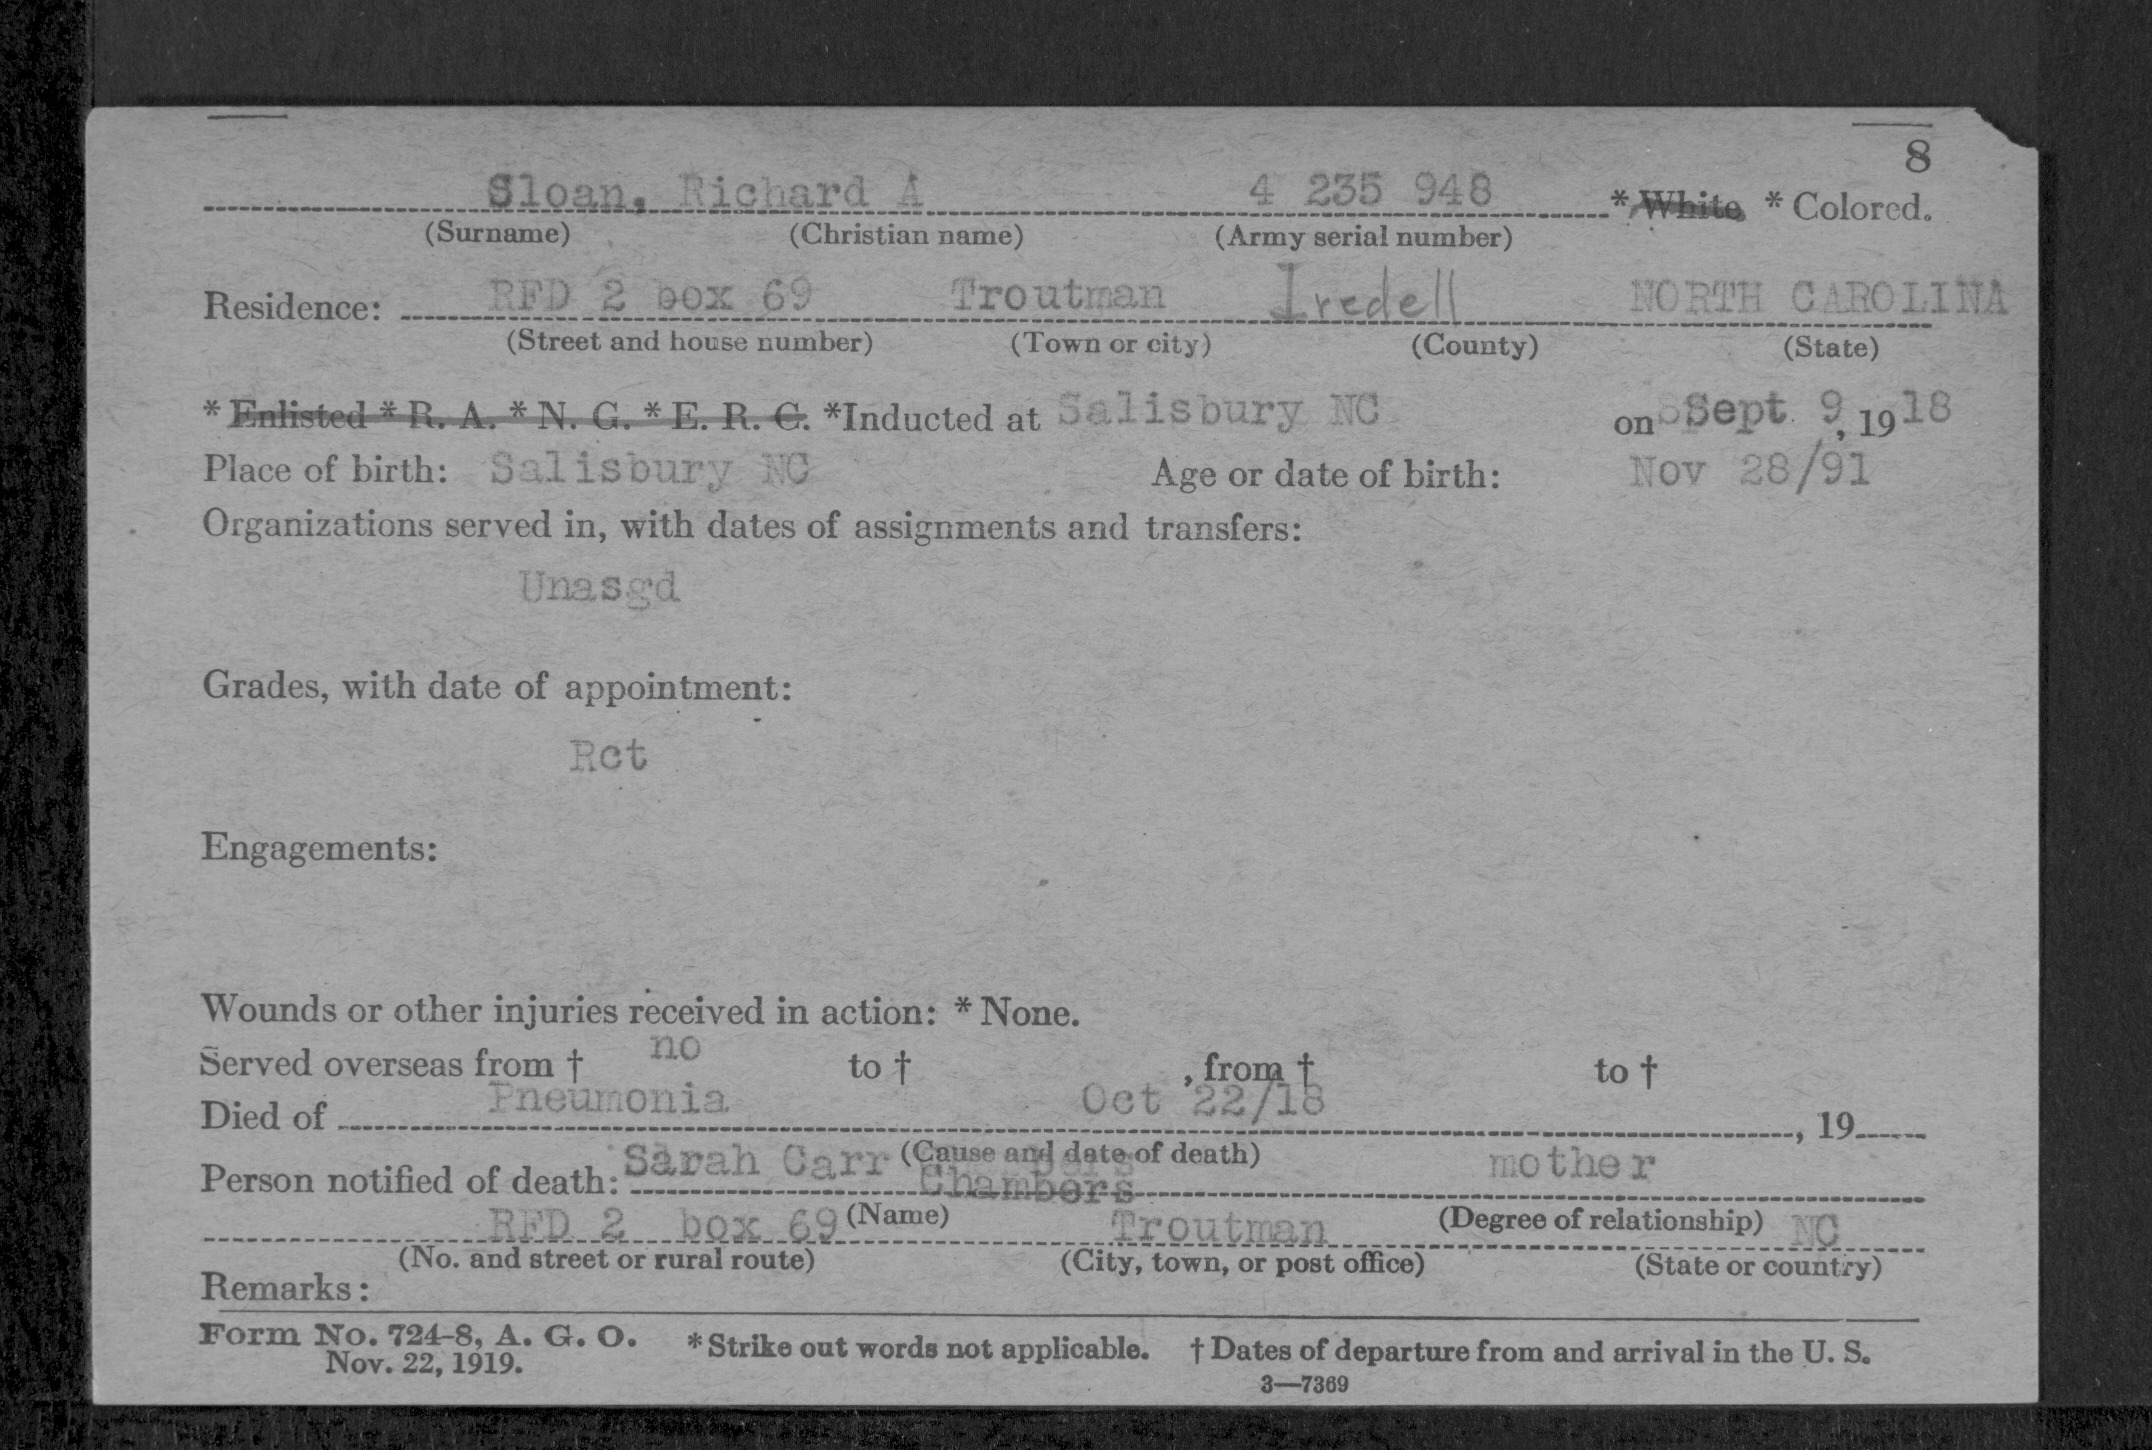 8
Sloan, Richard A 4 235 948 * White * Colored.
(Surname) (Christian name) (Army serial number)
Residence: RFD 2 box 69 Troutman Iredell NORTH CAROLINA
(Street and house number) (Town or city) (County) (State)
* Enlisted * R. A. * N. G. * E. R. C. *Inducted at Salisbury NC on Sept 9, 1918
Place of birth: Salisbury NC Age or date of birth: Nov 28/91
Organizations served in, with dates of assignments and transfers:
Unasgd
Grades, with date of appointment:
Rct
Engagements:
Wounds or other injuries received in action: * None.
Served overseas from † no to † , from † to †
Died of Pneumonia Oct 22/18 , 19
(Cause and date of death)
Person notified of death: Sarah Carr Chambers mother
(Name) (Degree of relationship)
RFD 2 box 69 Troutman NC
(No. and street or rural route) (City, town, or post office) (State or country)
Remarks:
Form No. 724-8, A. G. O. * Strike out words not applicable. † Dates of departure from and arrival in the U. S.
Nov. 22, 1919.
3—7369